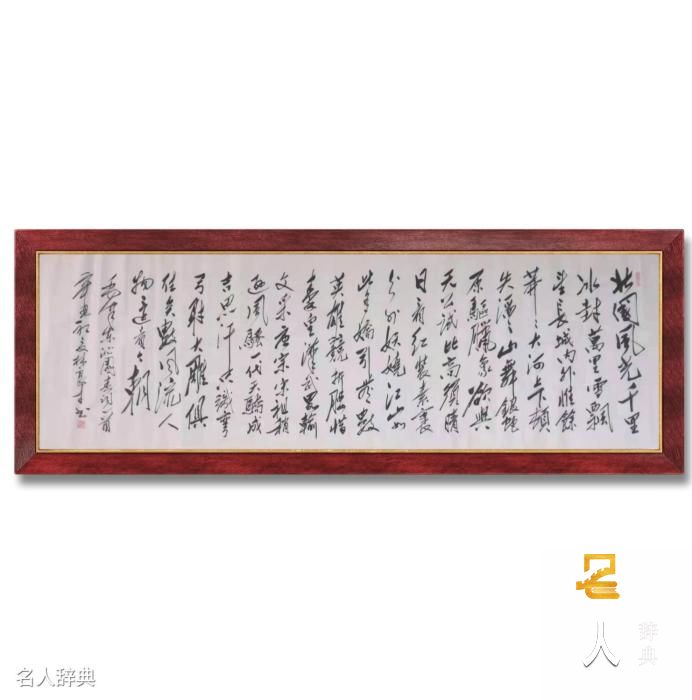 北國風光千里
冰封萬里雪飄
望長城内外惟餘
莽〻大河上下頓
失滔〻山舞銀蛇
原驅臘象欲與
天公試比高須晴
日看紅裝素裹
分外妖嬈江山如
此多嬌引無數
英雄競折腰惜
秦皇漢武略輸
文采唐宗宋祖稍
遜風騷一代天驕成
吉思汗只識彎
弓射大雕俱
往矣數風流人
物還看今朝
毛澤東沁園春詞一首
辛丑初夏林 書
名人辞典
名
人
辞典